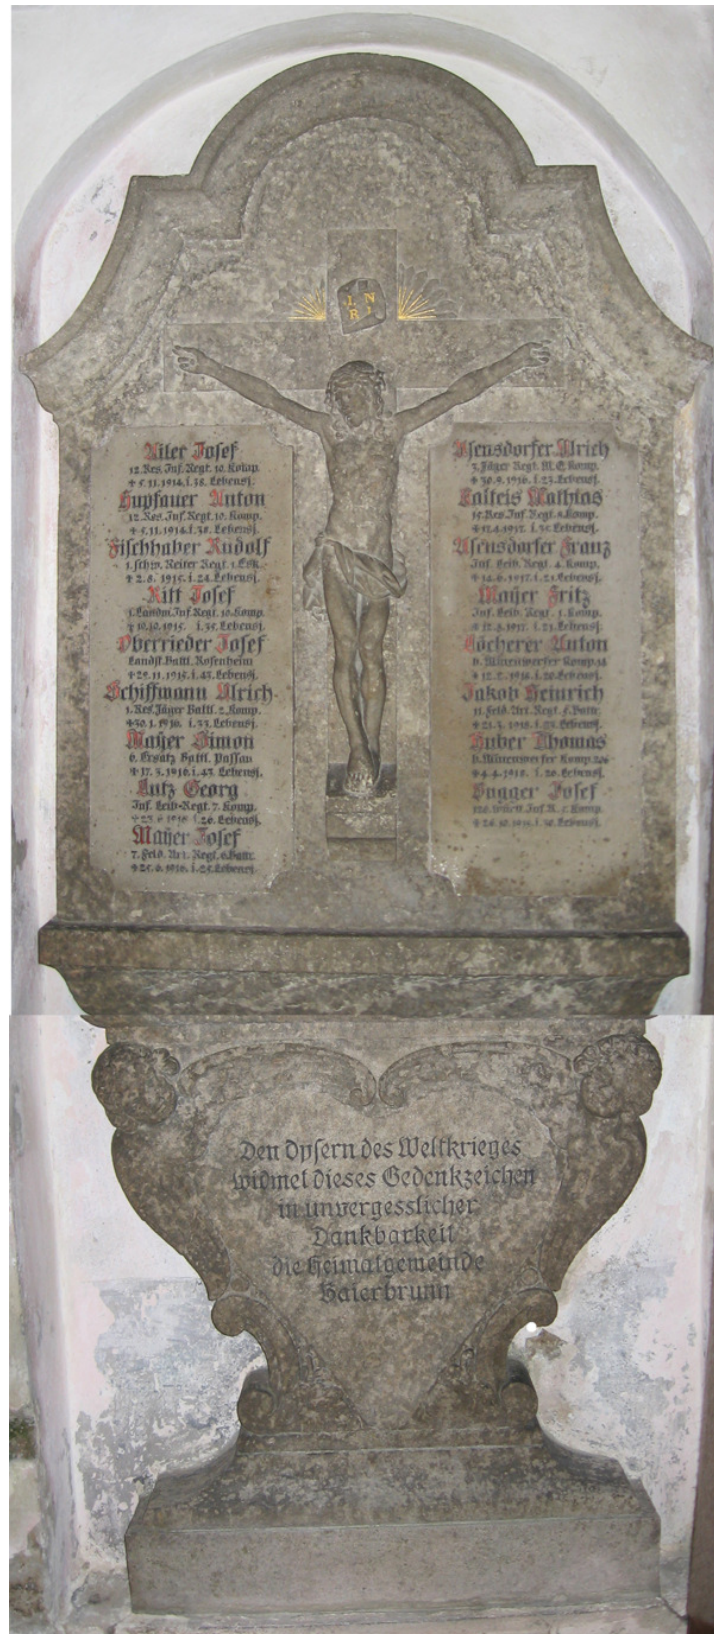 I. N
R I
Ailer Josef
12. Res. Inf. Regt. 10. Komp.
✝ 5. 11. 1914. i. 38. Lebensj.
Hupfauer Anton
12. Res. Inf. Regt. 10. Komp.
✝ 5. 11. 1914. i. 38. Lebensj.
Fischhaber Rudolf
1. schw. Reiter Regt. 1. Esk.
✝ 2. 8. 1915. i. 24. Lebensj.
Ritt Josef
1. Landw. Inf. Regt. 10. Komp.
✝ 10. 10. 1915. i. 35. Lebensj.
Oberrieder Josef
Landst. Battl. Rosenheim
✝ 29. 11. 1915. i. 43. Lebensj.
Schiffmann Ulrich
1. Res. Jäger Battl. 2. Komp.
✝ 30. 1. 1916. i. 33. Lebensj.
Mayer Simon
6. Ersatz Battl. Passau
✝ 17. 3. 1916. i. 43. Lebensj.
Lutz Georg
Inf. Leib-Regt. 7. Komp.
✝ 23. 6. 1916 i. 26. Lebensj.
Mayer Josef
7. Feld. Art. Regt. 6. Battr.
✝ 25. 6. 1916. i. 25. Lebensj.
Asensdorfer Ulrich
3. Jäger Regt. M. G. Komp.
✝ 30. 9. 1916. i. 23. Lebensj.
Kalteis Mathias
15. Res. Inf. Regt. 8. Komp.
✝ 17. 4. 1917. i. Lebensj.
Asensdorfer Franz
Inf. Leib. Regt. 4. Komp.
✝ 14. 6. 1917. i. 21. Lebensj.
Mayer Fritz
Inf. Leib. Regt. 1. Komp.
✝ 12. 8. 1917. i. 23. Lebensj.
Löcherer Anton
b. Minenwerfer Komp.
✝ 12. 2. 1918. i. 20. Lebensj.
Jakob Heinrich
11. Feld. Art. Regt. Battr.
✝ 21. 3. 1918. i. 23. Lebensj.
Huber Thomas
b. Minenwerfer Komp.
✝ 4. 4. 1918. i. 20. Lebensj.
Bugger Josef
Inf. R. Komp.
✝ 26. 10. i. 30. Lebensj.
Den Opfern des Weltkrieges
widmet dieses Gedenkzeichen
in unvergesslicher
Dankbarkeit
die Heimatgemeinde
Baierbrunn